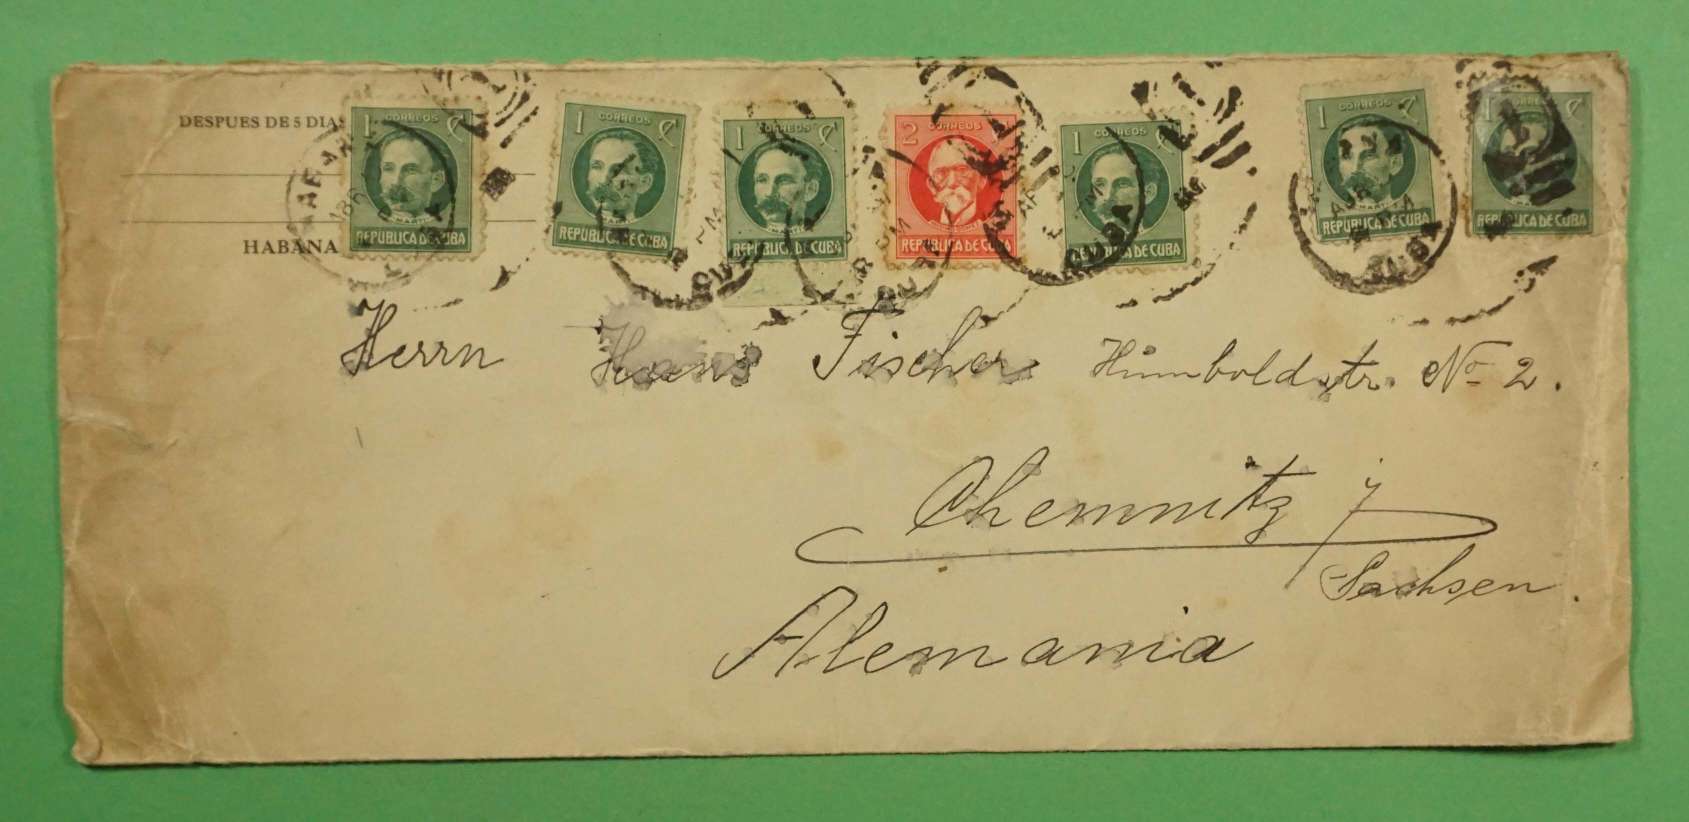 DESPUES DE 5 DIAS
HABANA
1 CORREOS ₡
REPUBLICA DE CUBA
1 CORREOS ₡
REPUBLICA DE CUBA
1 CORREOS ₡
REPUBLICA DE CUBA
2 CORREOS
REPUBLICA DE CUBA
1 CORREOS ₡
REPUBLICA DE CUBA
1 CORREOS ₡
REPUBLICA DE CUBA
1 CORREOS ₡
REPUBLICA DE CUBA
Herrn Hans Fischer Humboldstr. No 2.
Chemnitz /
Sachsen.
Alemania